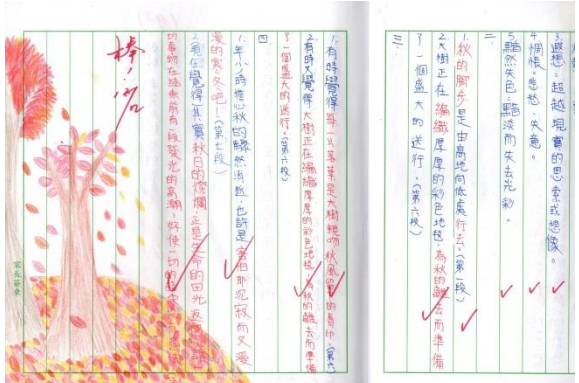 3.遐想：超越現實的思索或想像。
4.惆悵：悲愁、失意。
5.黯然失色：黯淡而失去光彩。
二、
1.秋的腳步是由高境向低處行去。(第一段)
2.大樹正在編織厚厚的彩色地毯，為秋的離去而準備
了一個盛大的送行。(第六段)
三、
1.有時覺得每一片落葉是大樹親吻秋風的唇印。(第六
2.有時又覺得大樹正在編織厚厚的彩色地毯，為秋的離去而準備
了一個盛大的送行。(第六段)
四
1.年少時擔心秋的驟然消逝，也許是害怕那沉寂而又漫
漫的寒冬吧！(第七段)
2.現在覺得其實秋日的燦爛正是生命的回光返照，
切事物在結束前有一段發光的高潮，好使一切的
棒!
家長簽章